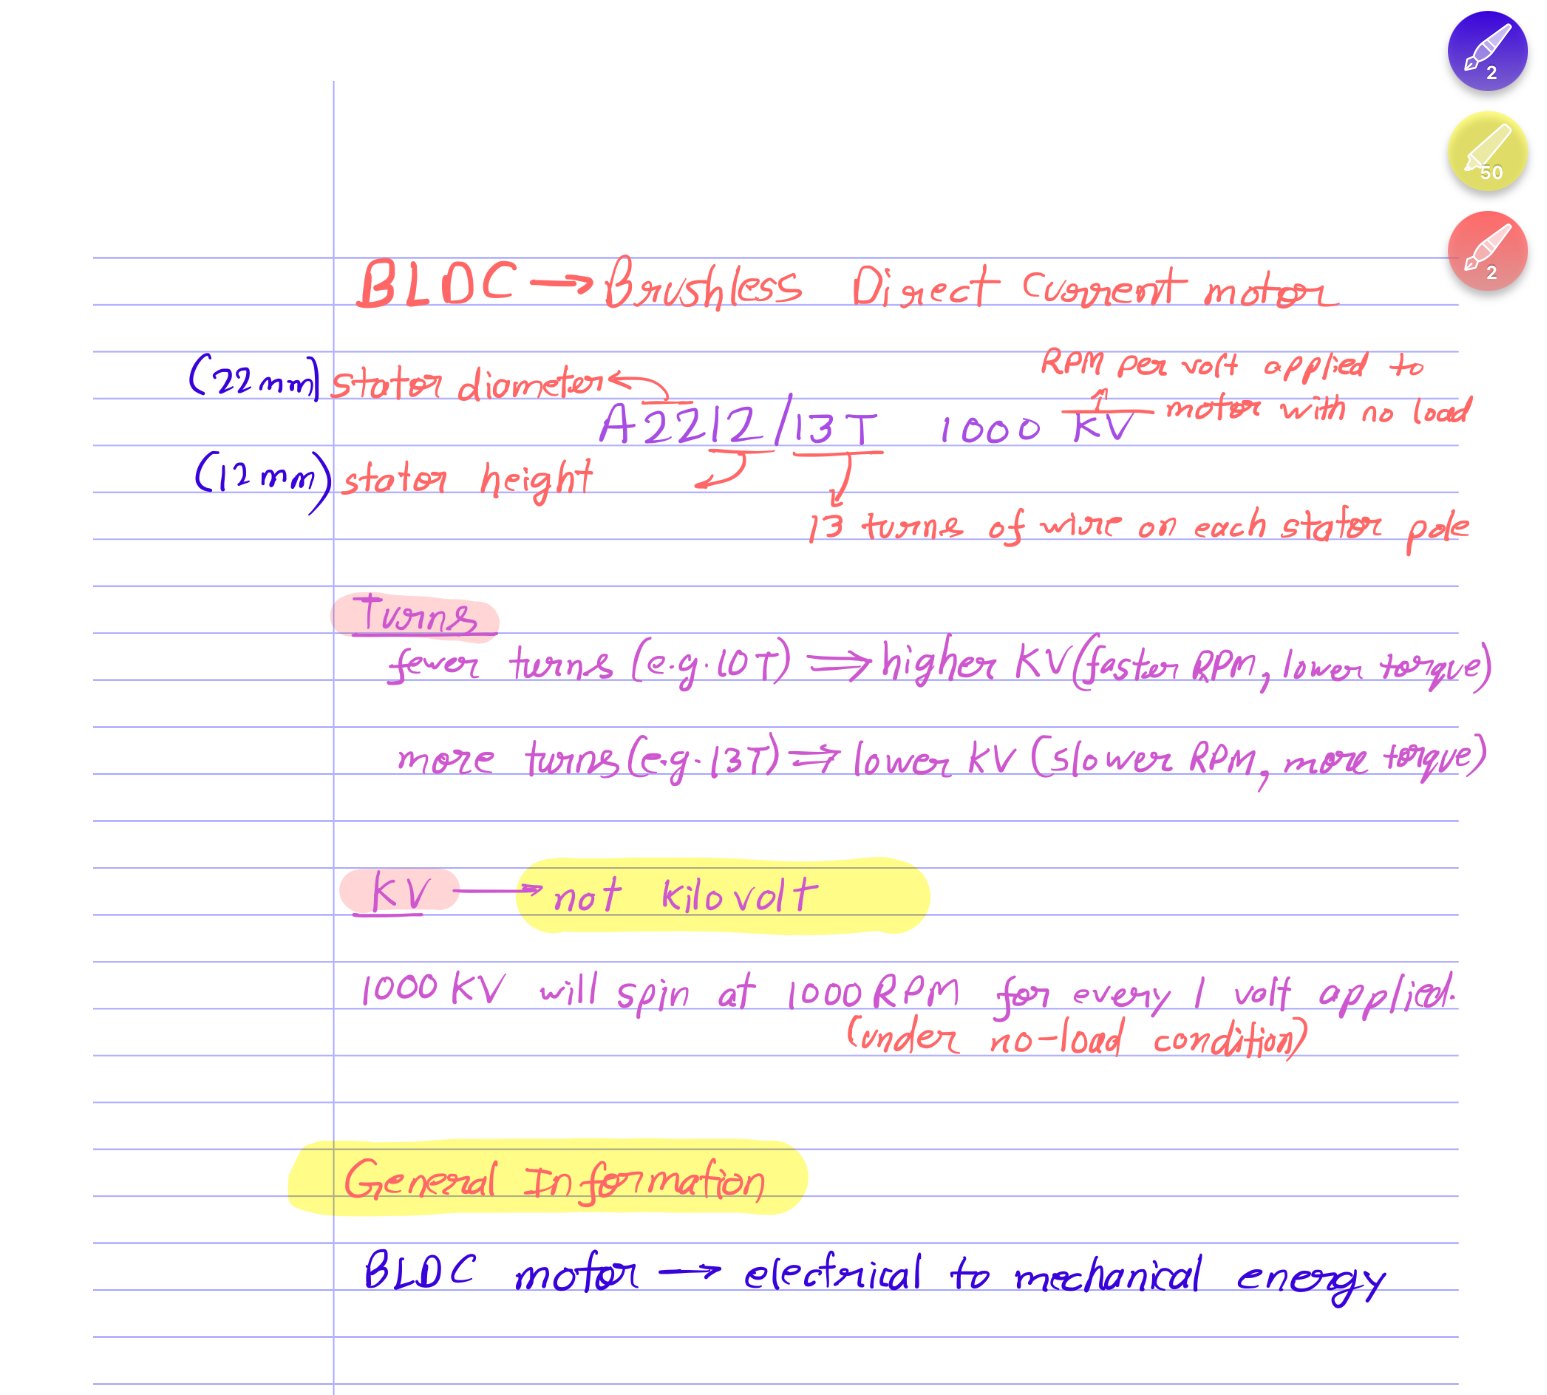 2
50
2
BLDC → Brushless Direct Current motor
RPM per volt applied to
(22 mm) stator diameter
motor with no load
A2212/13T 1000 KV
(12 mm) stator height
13 turns of wire on each stator pole
Turns
fewer turns (e.g. 10T) ⟹ higher KV (faster RPM, lower torque)
more turns (e.g. 13T) ⟹ lower KV (slower RPM, more torque)
KV → not kilovolt
1000 KV will spin at 1000 RPM for every 1 volt applied.
(under no-load condition)
General Information
BLDC motor → electrical to mechanical energy